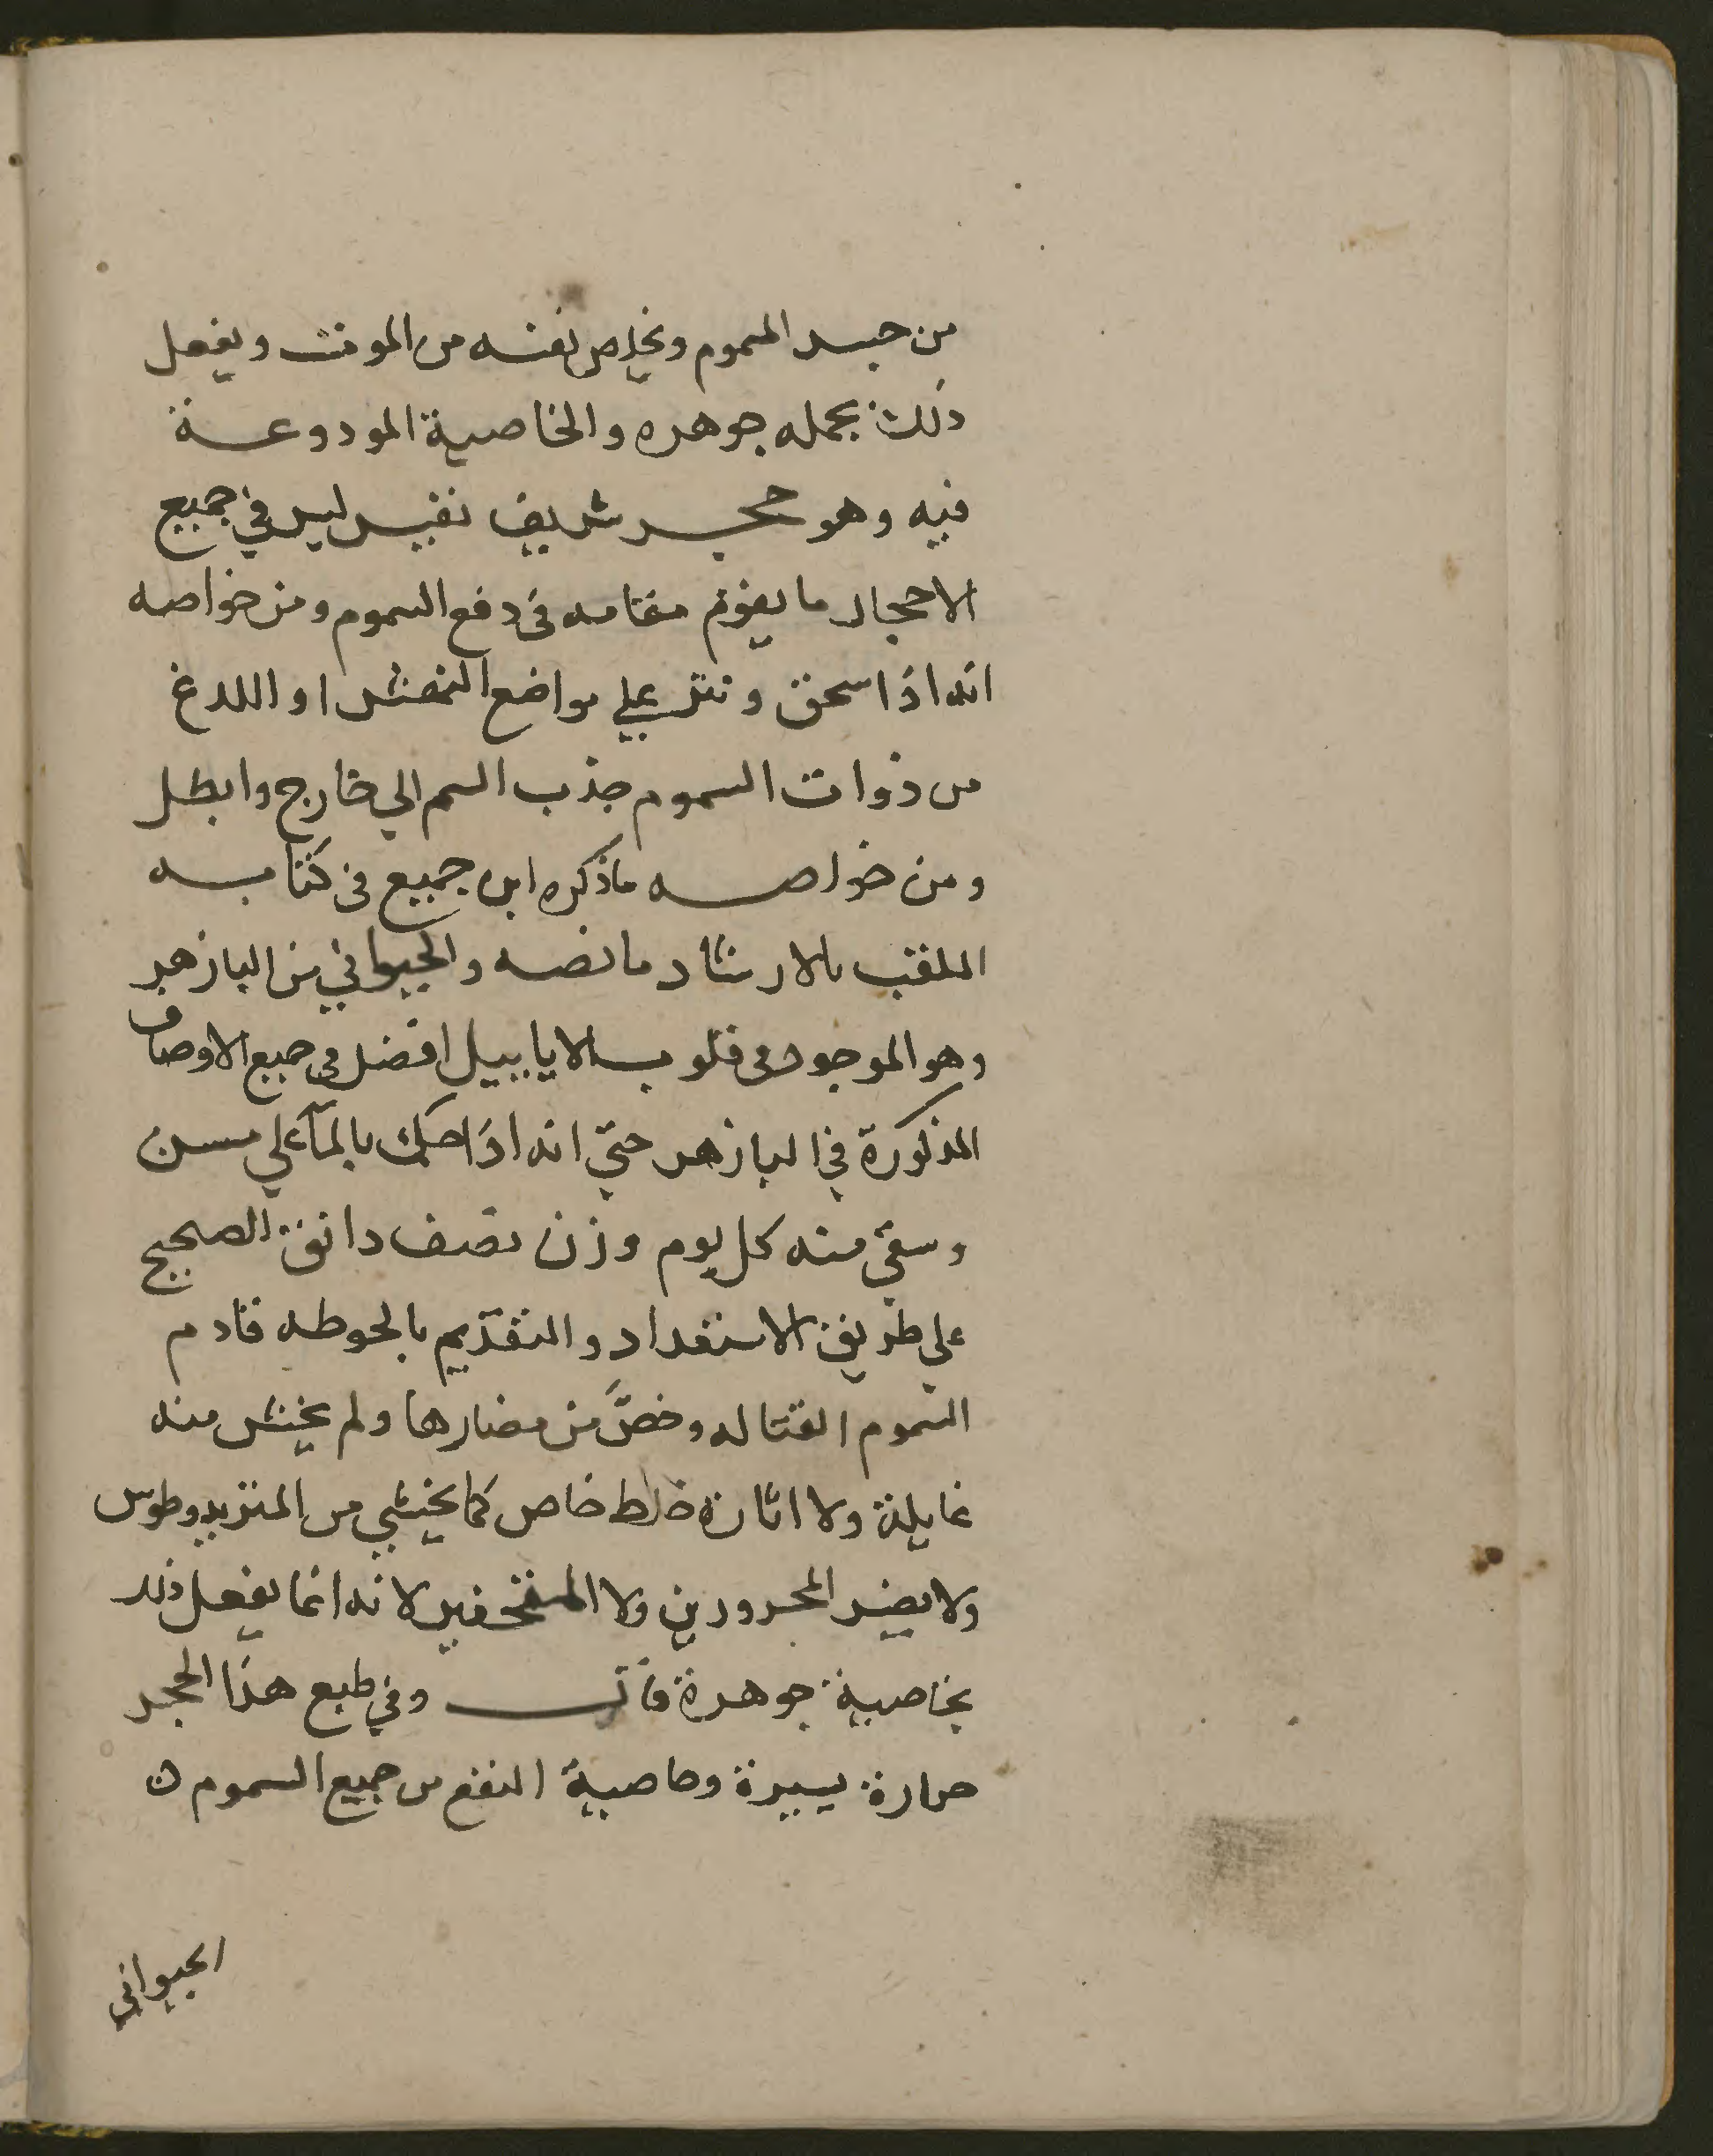 من جسد المسموم ويخلص نفسه من الموت ويفعل
ذلك بجمله جوهره والخاصية المودوعة
فيه وهو حجر شريف نفيس ليس في جميع
الاحجار ما يقوم مقامه في دفع السموم ومن خواصه
انه اذا سحق ونثر علي مواضع النهش او اللدغ
من ذوات السموم جذب السم الي خارج وابطل
ومن خواصه ماذكره ابن جميع في كتابه
الملقب بالارشاد ما نصه والحيواني من البازهر
وهو الموجود في قلوب الاياييل افضل في جميع الاوصاف
المذكورة في البازهر حتي انه اذا حك بالمآ علي مسن
وسقي منه كل يوم وزن نصف دانق الصحيح
علي طريق الاستعداد والتقديم بالحوطه قاوم
السموم القتاله وخصَّ من مضارها ولم يخش منه
غايلة ولا اثارة خلط خاص كما يخشي من المثريدوطوس
ولا يضر المحرورين ولا المنحفين لانه انما يفعل ذلك
بخاصية جوهرة قال وفي طبع هذا الحجر
حرارة يسيرة وخاصية النفع من جميع السموم ن
الحيواني